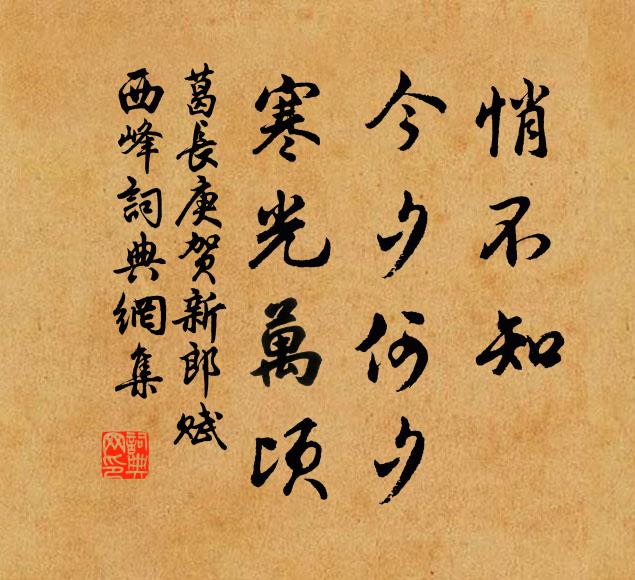 悄不知
今夕何夕
寒光萬頃
葛長庚賀新郎賦
西峰詞典網集
詞典网印